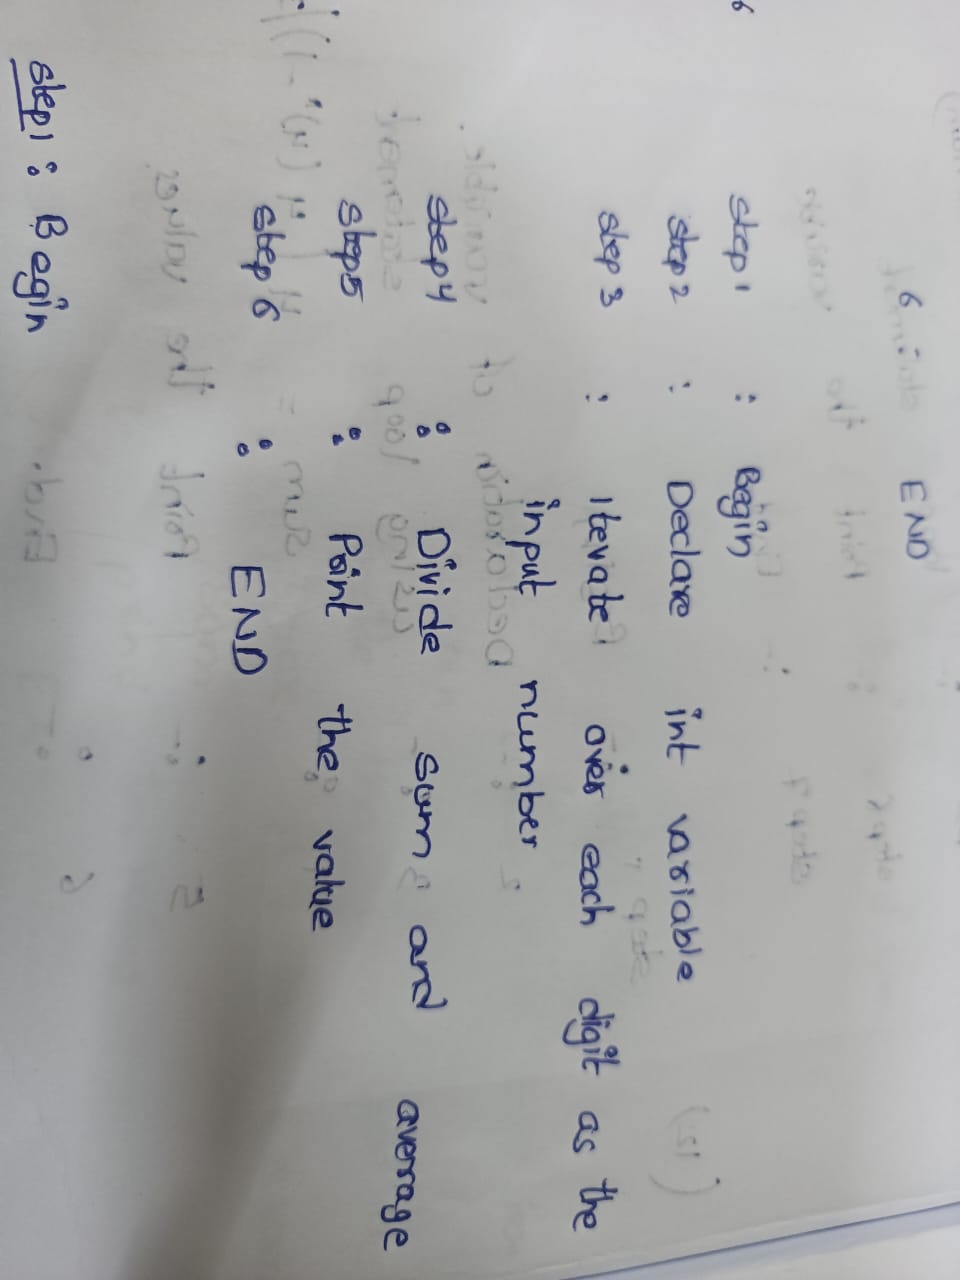 6 : END
6 step 1 : Begin
step 2 : Declare int variable
step 3 : Itevate over each digit as the
input number
step 4 : Divide sum and average
step 5 : Point the value
step 6 : END
step 1 : Begin